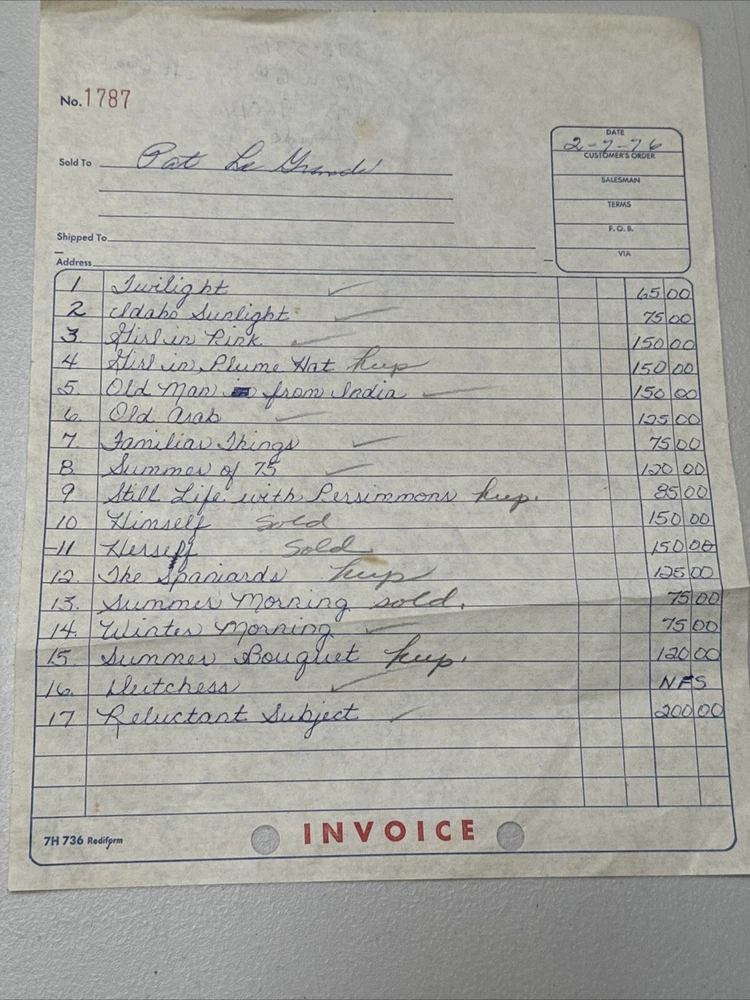 No. 1787
DATE
2-7-76
Sold To Pat Le Grande
CUSTOMER'S ORDER
SALESMAN
TERMS
F.O.B.
Shipped To
VIA
Address
1 Twilight ✓ 65 00
2 Idaho Sunlight ✓ 75 00
3 Girl in Pink ✓ 150 00
4 Girl in Plume Hat keep 150 00
5. Old Man from India ✓ 150 00
6. Old Arab ✓ 125 00
7. Familiar Things ✓ 75 00
8 Summer of 75 ✓ 120 00
9 Still Life with Persimmons keep. 85 00
10 Himself sold 150 00
11 Herself sold 150 00
12. The Spaniards keep 125 00
13. Summer Morning sold. 75 00
14. Winter Morning ✓ 75 00
15 Summer Bouquet keep. 120 00
16. Dutchess ✓ NFS
17 Reluctant Subject ✓ 200 00
7H 736 Rediform
INVOICE